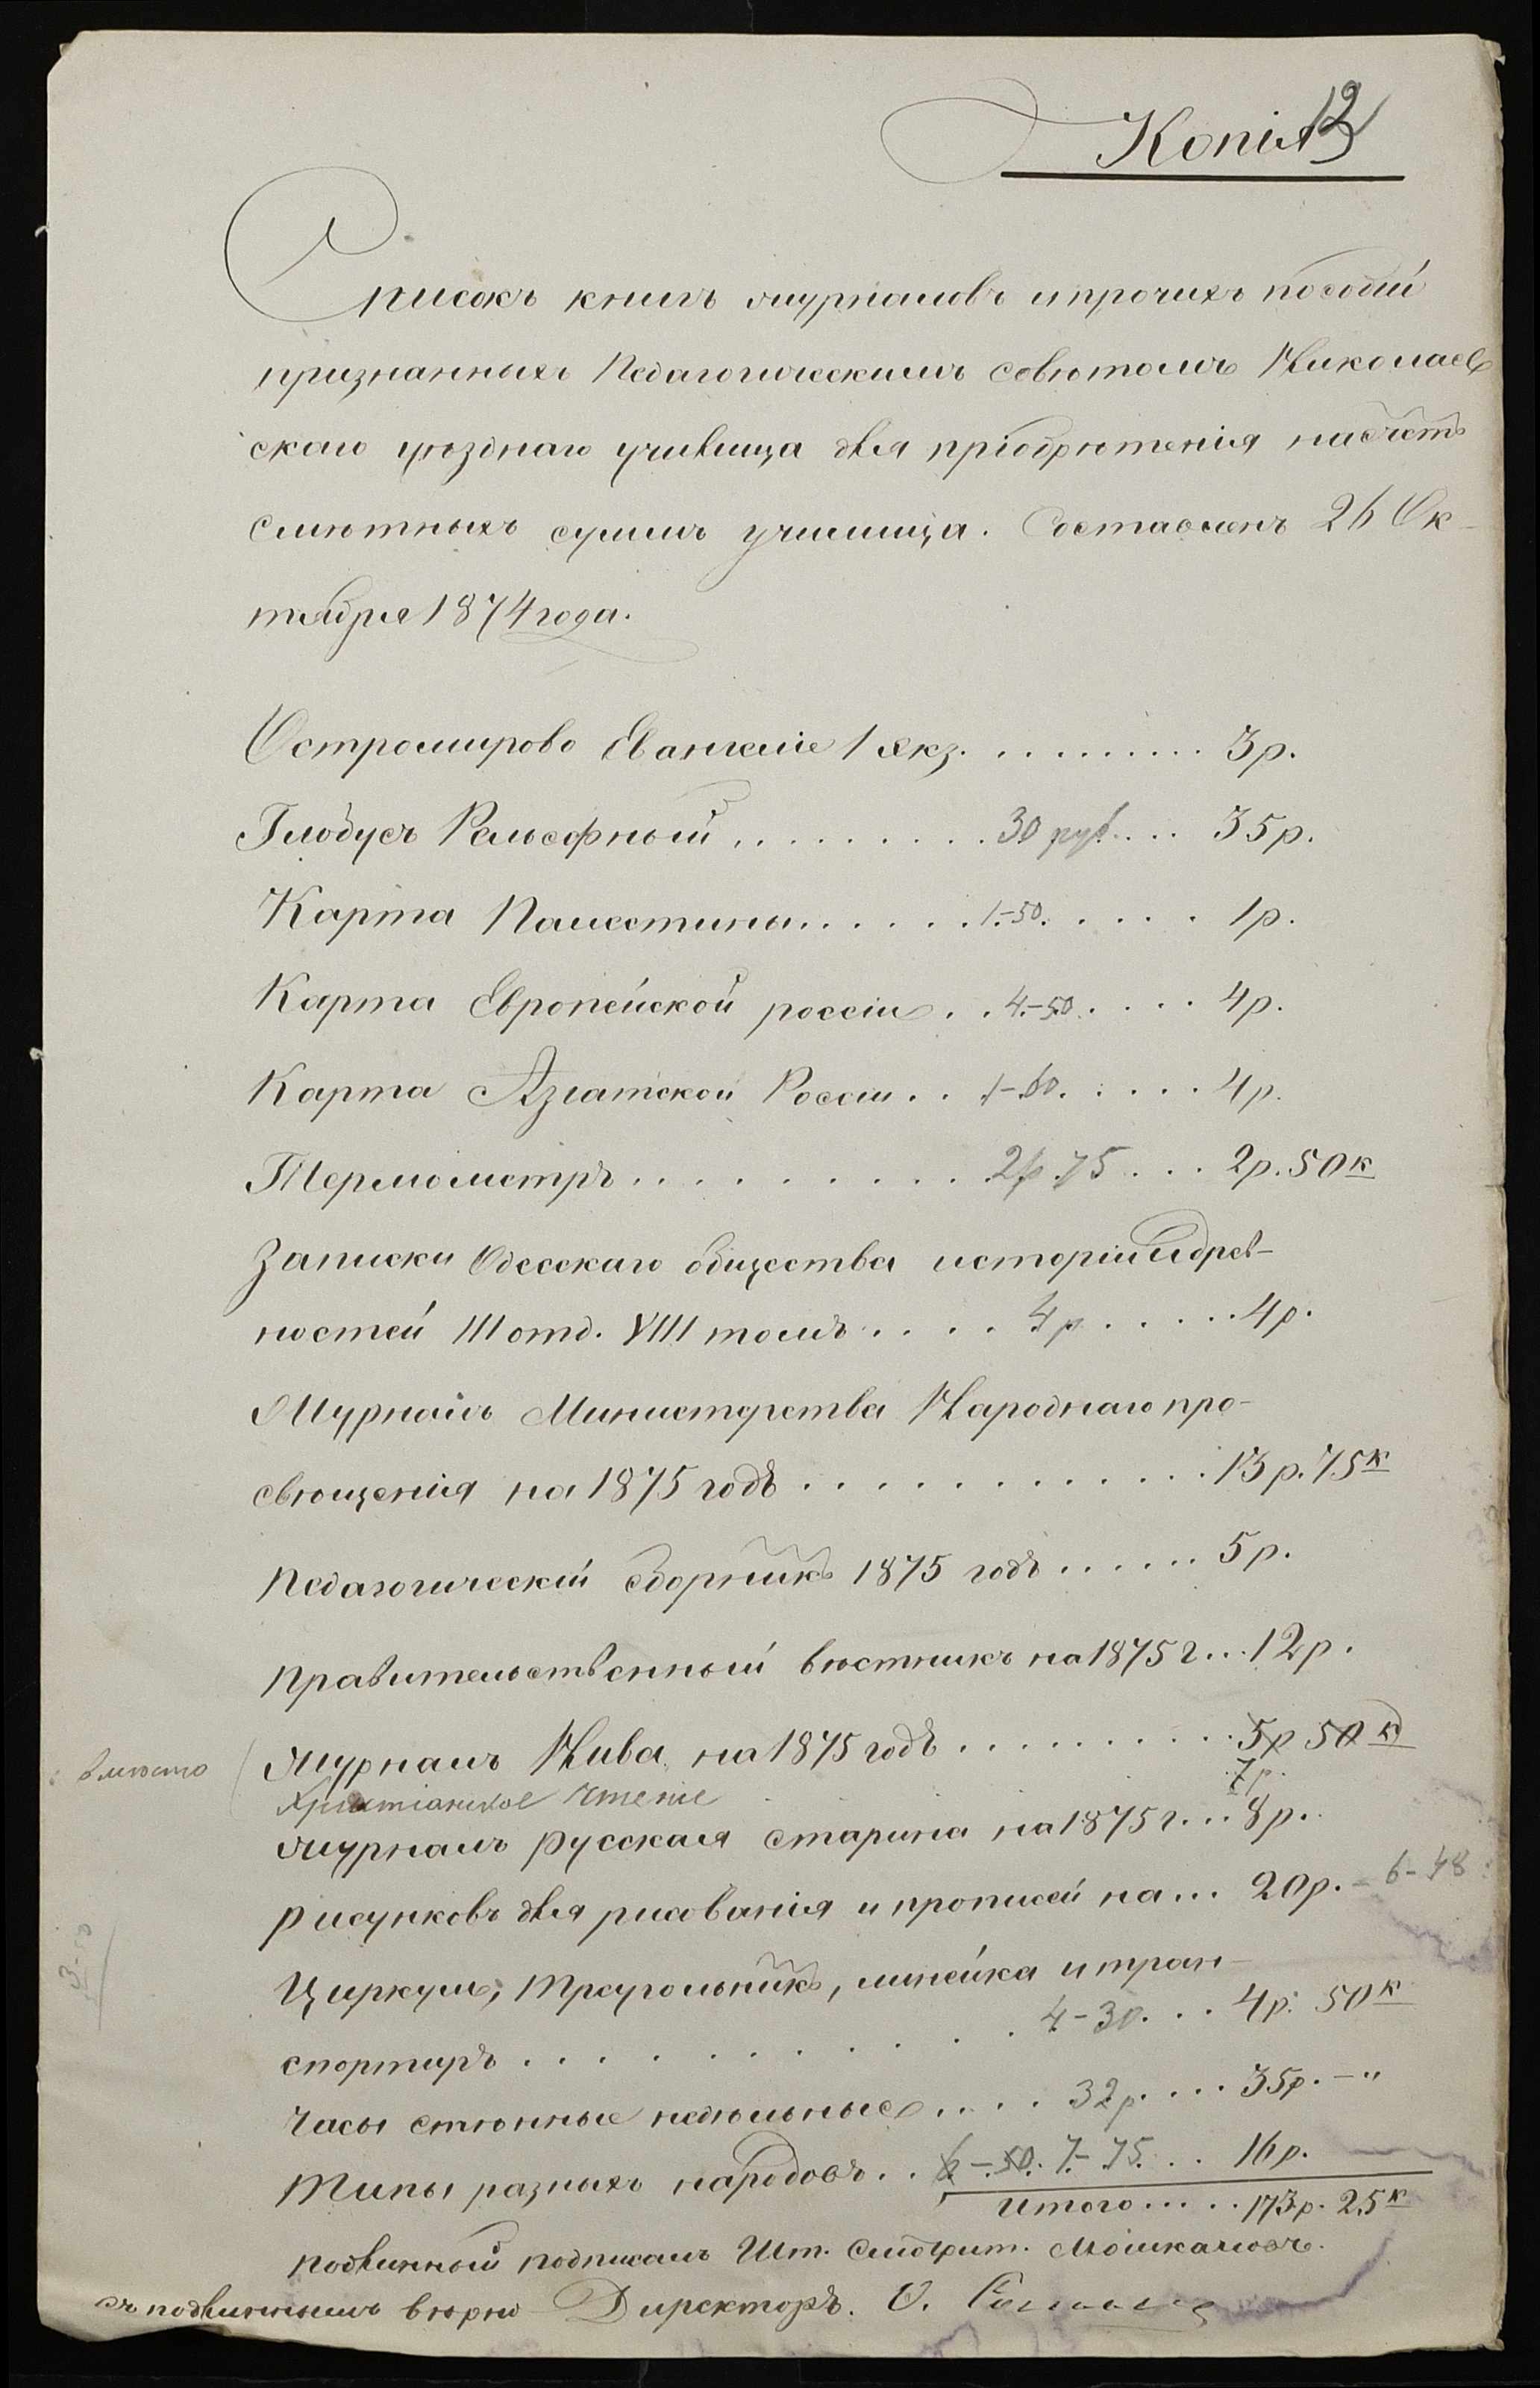 Копія
12
Списокъ книгъ журналовъ и прочихъ пособій
признанныхъ Педагогическимъ совѣтомъ Николаев
скаго уѣзднаго училища для пріобрѣтенія на счетъ
смѣтныхъ суммъ училища. Составленъ 26 Ок-
тября 1874 года.
Остромирово Евангеліе 1 экз. . . . . . . . . . 3 р.
Глобусъ Рельефный . . . . . . . . . 30 руб. . . . 35 р.
Карта Палестины . . . . . . 1.-50. . . . . 1 р.
Карта Европейской россіи . . 4.-50 . . . . 4 р.
Карта Азіатской Россіи . . 1-60. . . . . 4 р.
Термометръ . . . . . . . . . . 2р 75 . . . 2 р. 50 к
Записки Одесскаго общества исторіи и древ-
ностей III отд. VIII томъ . . . . 4 р . . . . . 4 р.
Журналъ Министерства Народнаго про-
свѣщенія на 1875 годъ . . . . . . . . . . . . . 13 р. 75 к
Педагогическій сборникъ 1875 годъ . . . . . . 5 р.
Правительственный вѣстникъ на 1875 г. . . 12 р.
вмѣсто Журналъ Нива на 1875 годъ . . . . . . . . . . 5 р 50 к
Христіанское Чтеніе 7 р.
Журналъ русская старина на 1875 г. . . 8 р.
Рисунковъ для рисованія и прописей на . . . 20 р. - 6-48
Циркуль, треугольникъ, линейка и тран-
спортиръ . . . . . . . . . 4-30. . . 4 р. 50 к
Часы стѣнные недѣльные . . . . 32 р. . . . 35 р. - "
Типы разныхъ народовъ . . 6-.50. 7.-75. . . 16 р.
Итого . . . . . 173 р. 25 к
Подлинный подписалъ Шт. Смотрит. Мошкаловъ.
Съ подлиннымъ вѣрно Директоръ. О.